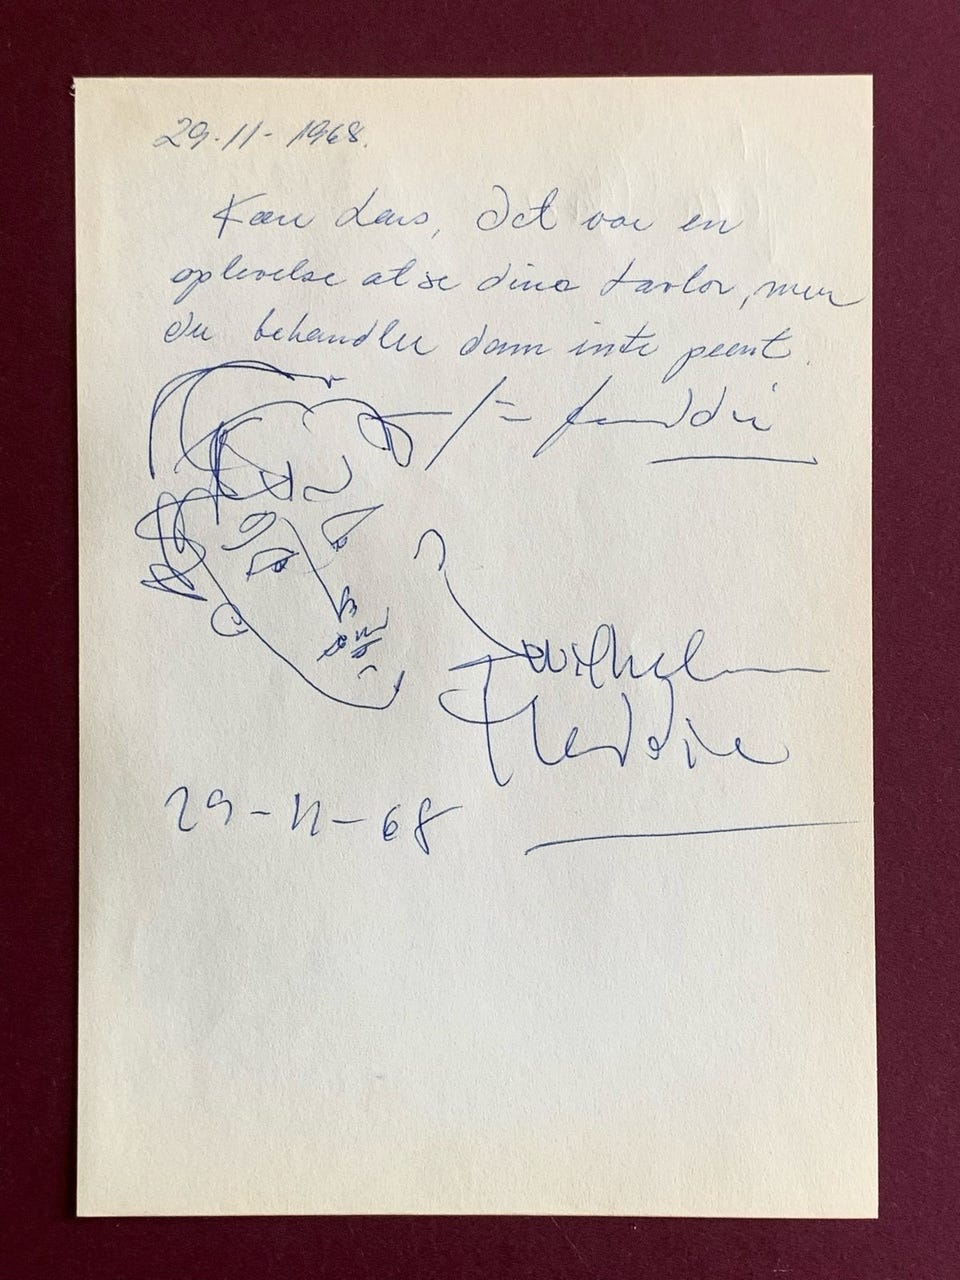 29-11-1968.
Kære Lars, Det var en
oplevelse at se dina tavlor, men
du behandler dom inte pænt.
/= Freddie
Wilhelm
Freddie
29-11-68